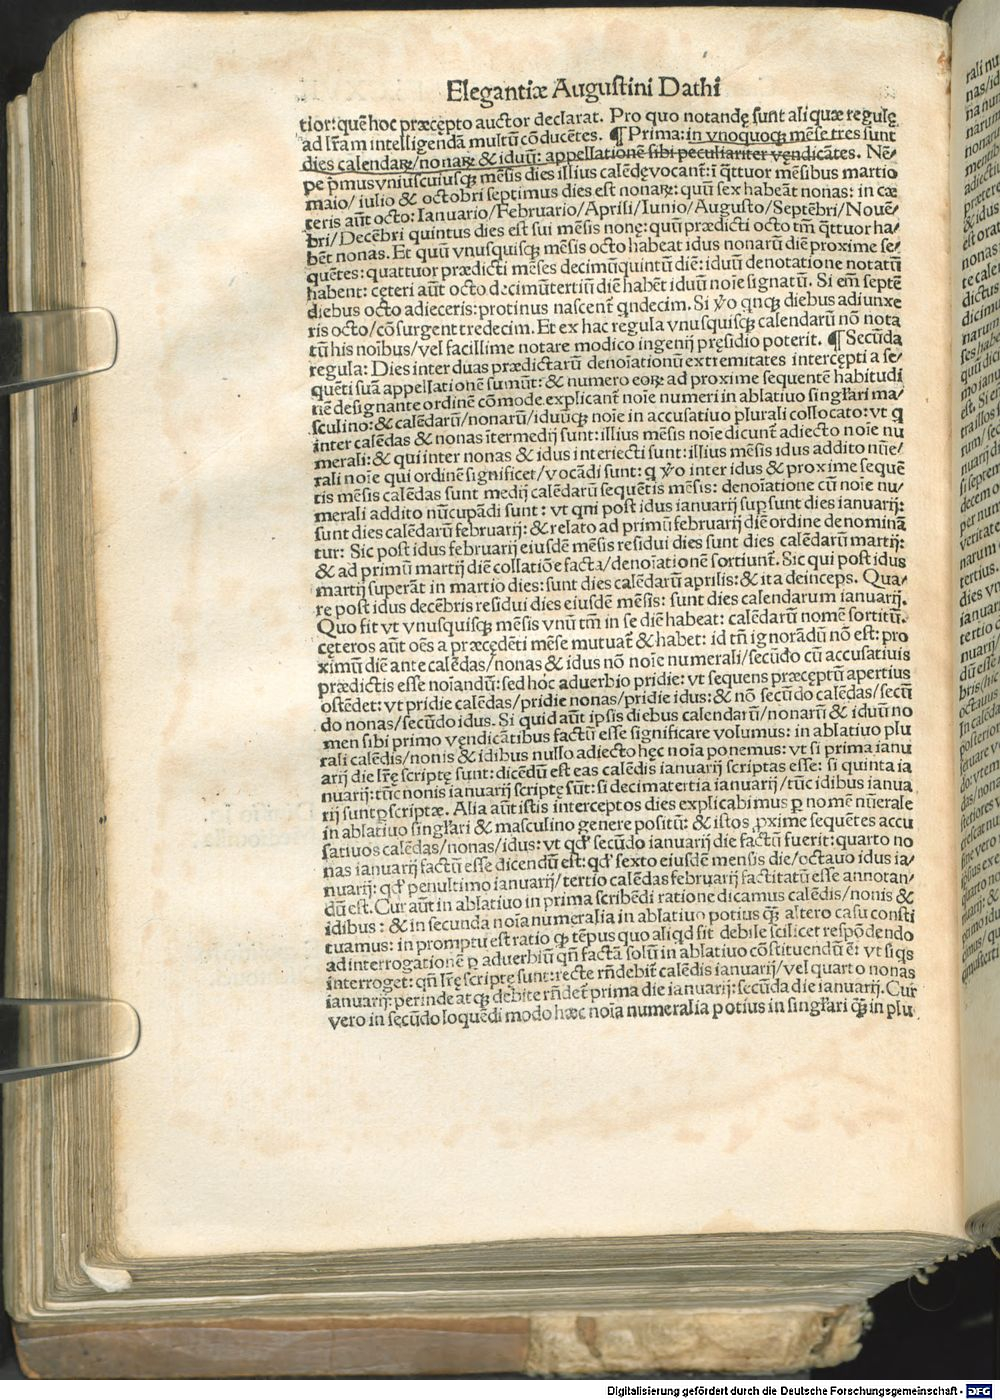 Elegantiæ Augustini Dathi
tior: quē hoc præcepto auctor declarat. Pro quo notandę sunt aliquæ regulę
ad lr̄am intelligendā multū cōducētes. ¶ Prima: in vnoquoqȝ mēse tres sunt
dies calendaꝝ/nonaꝝ & iduū: appellationē sibi peculiariter vēdicātes. Nē⸗
pe pͥmus vniuscuiusqȝ mēsis dies illius calēdę vocant᷑: ī qͣttuor mēsibus martio
maio/ iulio & octobri septimus dies est nonaꝝ: quū sex habeāt nonas: in cæ
teris aūt octo: Ianuario/Februario/Aprili/Iunio/Augusto/Septēbri/Nouē⸗
bri/Decēbri quintus dies est sui mēsis nonę: quū prædicti octo tm̄ qͣttuor ha⸗
bēt nonas. Et quū vnusquisqȝ mēsis octo habeat idus nonarū diē proxime se⸗
quētes: quattuor prædicti mēses decimūquintū diē: iduū denotatione notatū
habent: cęteri aūt octo decimūtertiū diē habēt iduū noīe signatū. Si em̄ septē
diebus octo adieceris: protinus nascent᷑ qͥndecim. Si ꝟo qͥnqȝ diebus adiunxe
ris octo/cōsurgent tredecim. Et ex hac regula vnusquisqȝ calendarū nō nota
tū his noībus/vel facillime notare modico ingenij pręsidio poterit. ¶ Secūda
regula: Dies inter duas prædictarū denoīationū extremitates intercępti a se⸗
quēti suā appellationē sumūt: & numero eoꝝ ad proxime sequentē habitudi
nē designante ordinē cōmode explicant noīe numeri in ablatiuo singl̄ari ma⸗
sculino: & calēdarū/nonarū/iduūqȝ noīe in accusatiuo plurali collocato: vt q
inter calēdas & nonas ītermedij sunt: illius mēsis noīe dicunt᷑ adiecto noīe nu
merali: & qui inter nonas & idus interiecti sunt: illius mēsis idus addito nūe⸗
rali noīe qui ordinē significet/vocādi sunt: q ꝟo inter idus & proxime sequē
tis mēsis calēdas sunt medij calēdarū sequētis mēsis: denoīatione cū noīe nu⸗
merali addito nūcupādi sunt: vt qͥni post idus ianuarij sup̱sunt dies ianuarij:
sunt dies calēdarū februarij: & relato ad primū februarij diē ordine denominā
tur: Sic post idus februarij eiusdē mēsis residui dies sunt dies calēdarū martij:
& ad primū martij diē collatiōe facta/denoīationē sortiunt᷑. Sic qui post idus
martij superāt in martio dies: sunt dies calēdarū aprilis: & ita deinceps. Qua⸗
re post idus decēbris residui dies eiusdē mēsis: sunt dies calendarum ianuarij.
Quo fit vt vnusquisqȝ mēsis vnū tm̄ in se diē habeat: calēdarū nomē sortitū.
cęteros aūt oēs a præcędēti mēse mutuat᷑ & habet: id tn̄ ignorādū nō est: pro
ximū diē ante calēdas/nonas & idus nō noīe numerali/secūdo cū accusatiuis
prædictis esse noīandū: sed hoc aduerbio pridie: vt sequens præceptū apertius
ostēdet: vt pridie calēdas/pridie nonas/pridie idus: & nō secūdo calēdas/secū
do nonas/secūdo idus. Si quid aūt ipsis diebus calendarū/nonarū & iduū no
men sibi primo vēndicātibus factū esse significare volumus: in ablatiuo plu
rali calēdis/nonis & idibus nullo adiecto hęc noīa ponemus: vt si prima ianu
arij die lr̄ę scriptę sunt: dicēdū est eas calēdis ianuarij scriptas esse: si quinta ia
nuarij: tūc nonis ianuarij scriptę sūt: si decimatertia ianuarij/tūc idibus ianua
rij sunt p̱scriptæ. Alia aūt istis interceptos dies explicabimus ꝑ nomē nūerale
in ablatiuo singl̄ari & masculino genere positū: & istos ꝓxime sequētes accu
satiuos calēdas/nonas/idus: vt qđ secūdo ianuarij die factū fuerit: quarto no
nas ianuarij factū esse dicendū est: qđ sexto eiusdē mensis die/octauo idus ia⸗
nuarij: qđ penultimo ianuarij/tertio calēdas februarij factitatū esse annotan⸗
dū est. Cur aūt in ablatiuo in prima scribēdi ratione dicamus calēdis/nonis &
idibus: & in secunda noīa numeralia in ablatiuo potius qȝ̄ altero casu consti
tuamus: in promptu est ratio qȝ tēpus quo aliqd sit debile scilicet respōdendo
ad interrogationē ꝑ aduerbiū qn̄ facta solū in ablatiuo cōstituendū ē: vt siqs
interroget: qn̄ lr̄ę scriptę sunt: recte rn̄debit᷑ calēdis ianuarij/vel quarto nonas
ianuarij: perinde atqȝ debite rn̄det᷑ prima die ianuarij: secūda die ianuarij. Cur
vero in secūdo loquēdi modo hæc noīa numeralia potius in singl̄ari qȝ̄ in plu
Digitalisierung gefördert durch die Deutsche Forschungsgemeinschaft - DFG